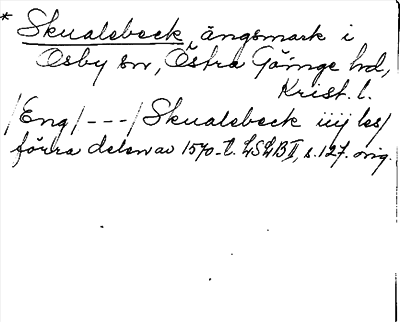 * Skualsbeck, ängsmark i
Osby sn, Östra Göinge hd,
Krist. l.
/Eng/ --- / Skualsbeck iiij lss/
förra delen av 1570-t. LSLB II, s. 127. orig.